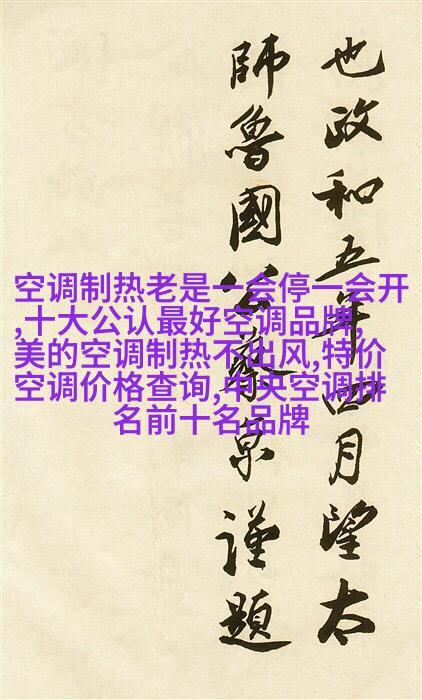 也政和五年四月望太
師魯國公蔡京謹題
空调制热老是一会停一会开
,十大公认最好空调品牌,
美的空调制热不出风,特价
空调价格查询,中央空调排
名前十名品牌